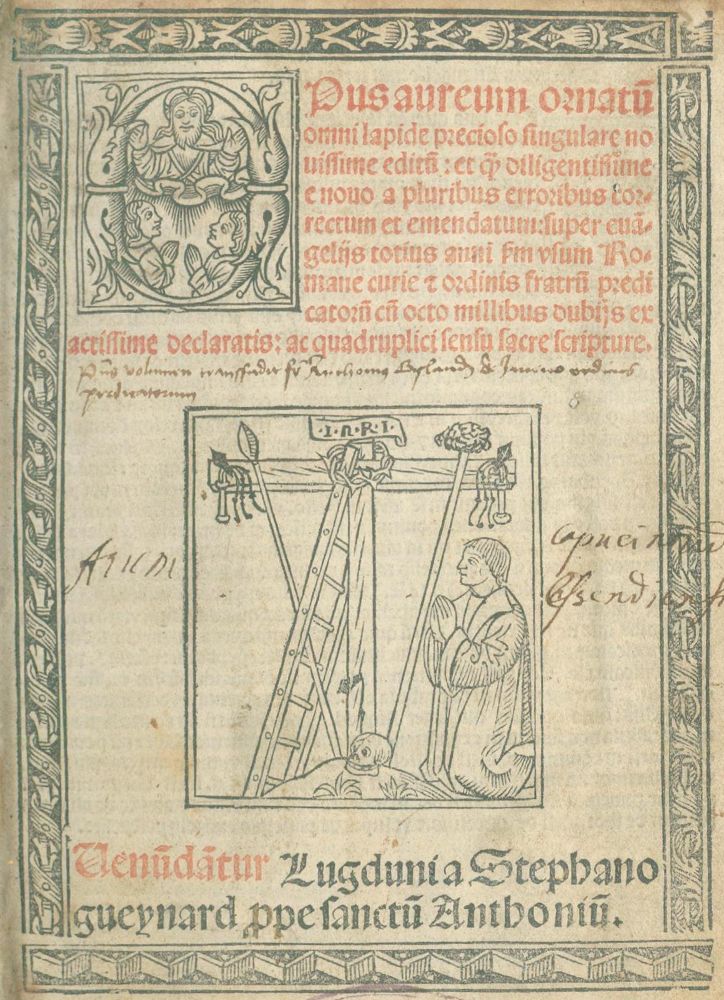 Opus aureum ornatũ
omni lapide precioso singulare no
uissime editũ: et qȝ diligentissime
e nouo a pluribus erroribus cor-
rectum et emendatum: super euã-
gelijs totius anni ẜm vsum Ro-
mane curie ⁊ ordinis fratrũ predi
catorũ cũ octo millibus dubijs ex
actissime declaratis: ac quadruplici sensu sacre scripture.
volumen fr̃ Anthonius de ordinis
predicatorum
·I·N·R·I·
Venũdãtur Lugduni a Stephano
gueynard ꝓpe sanctũ Anthoniũ.